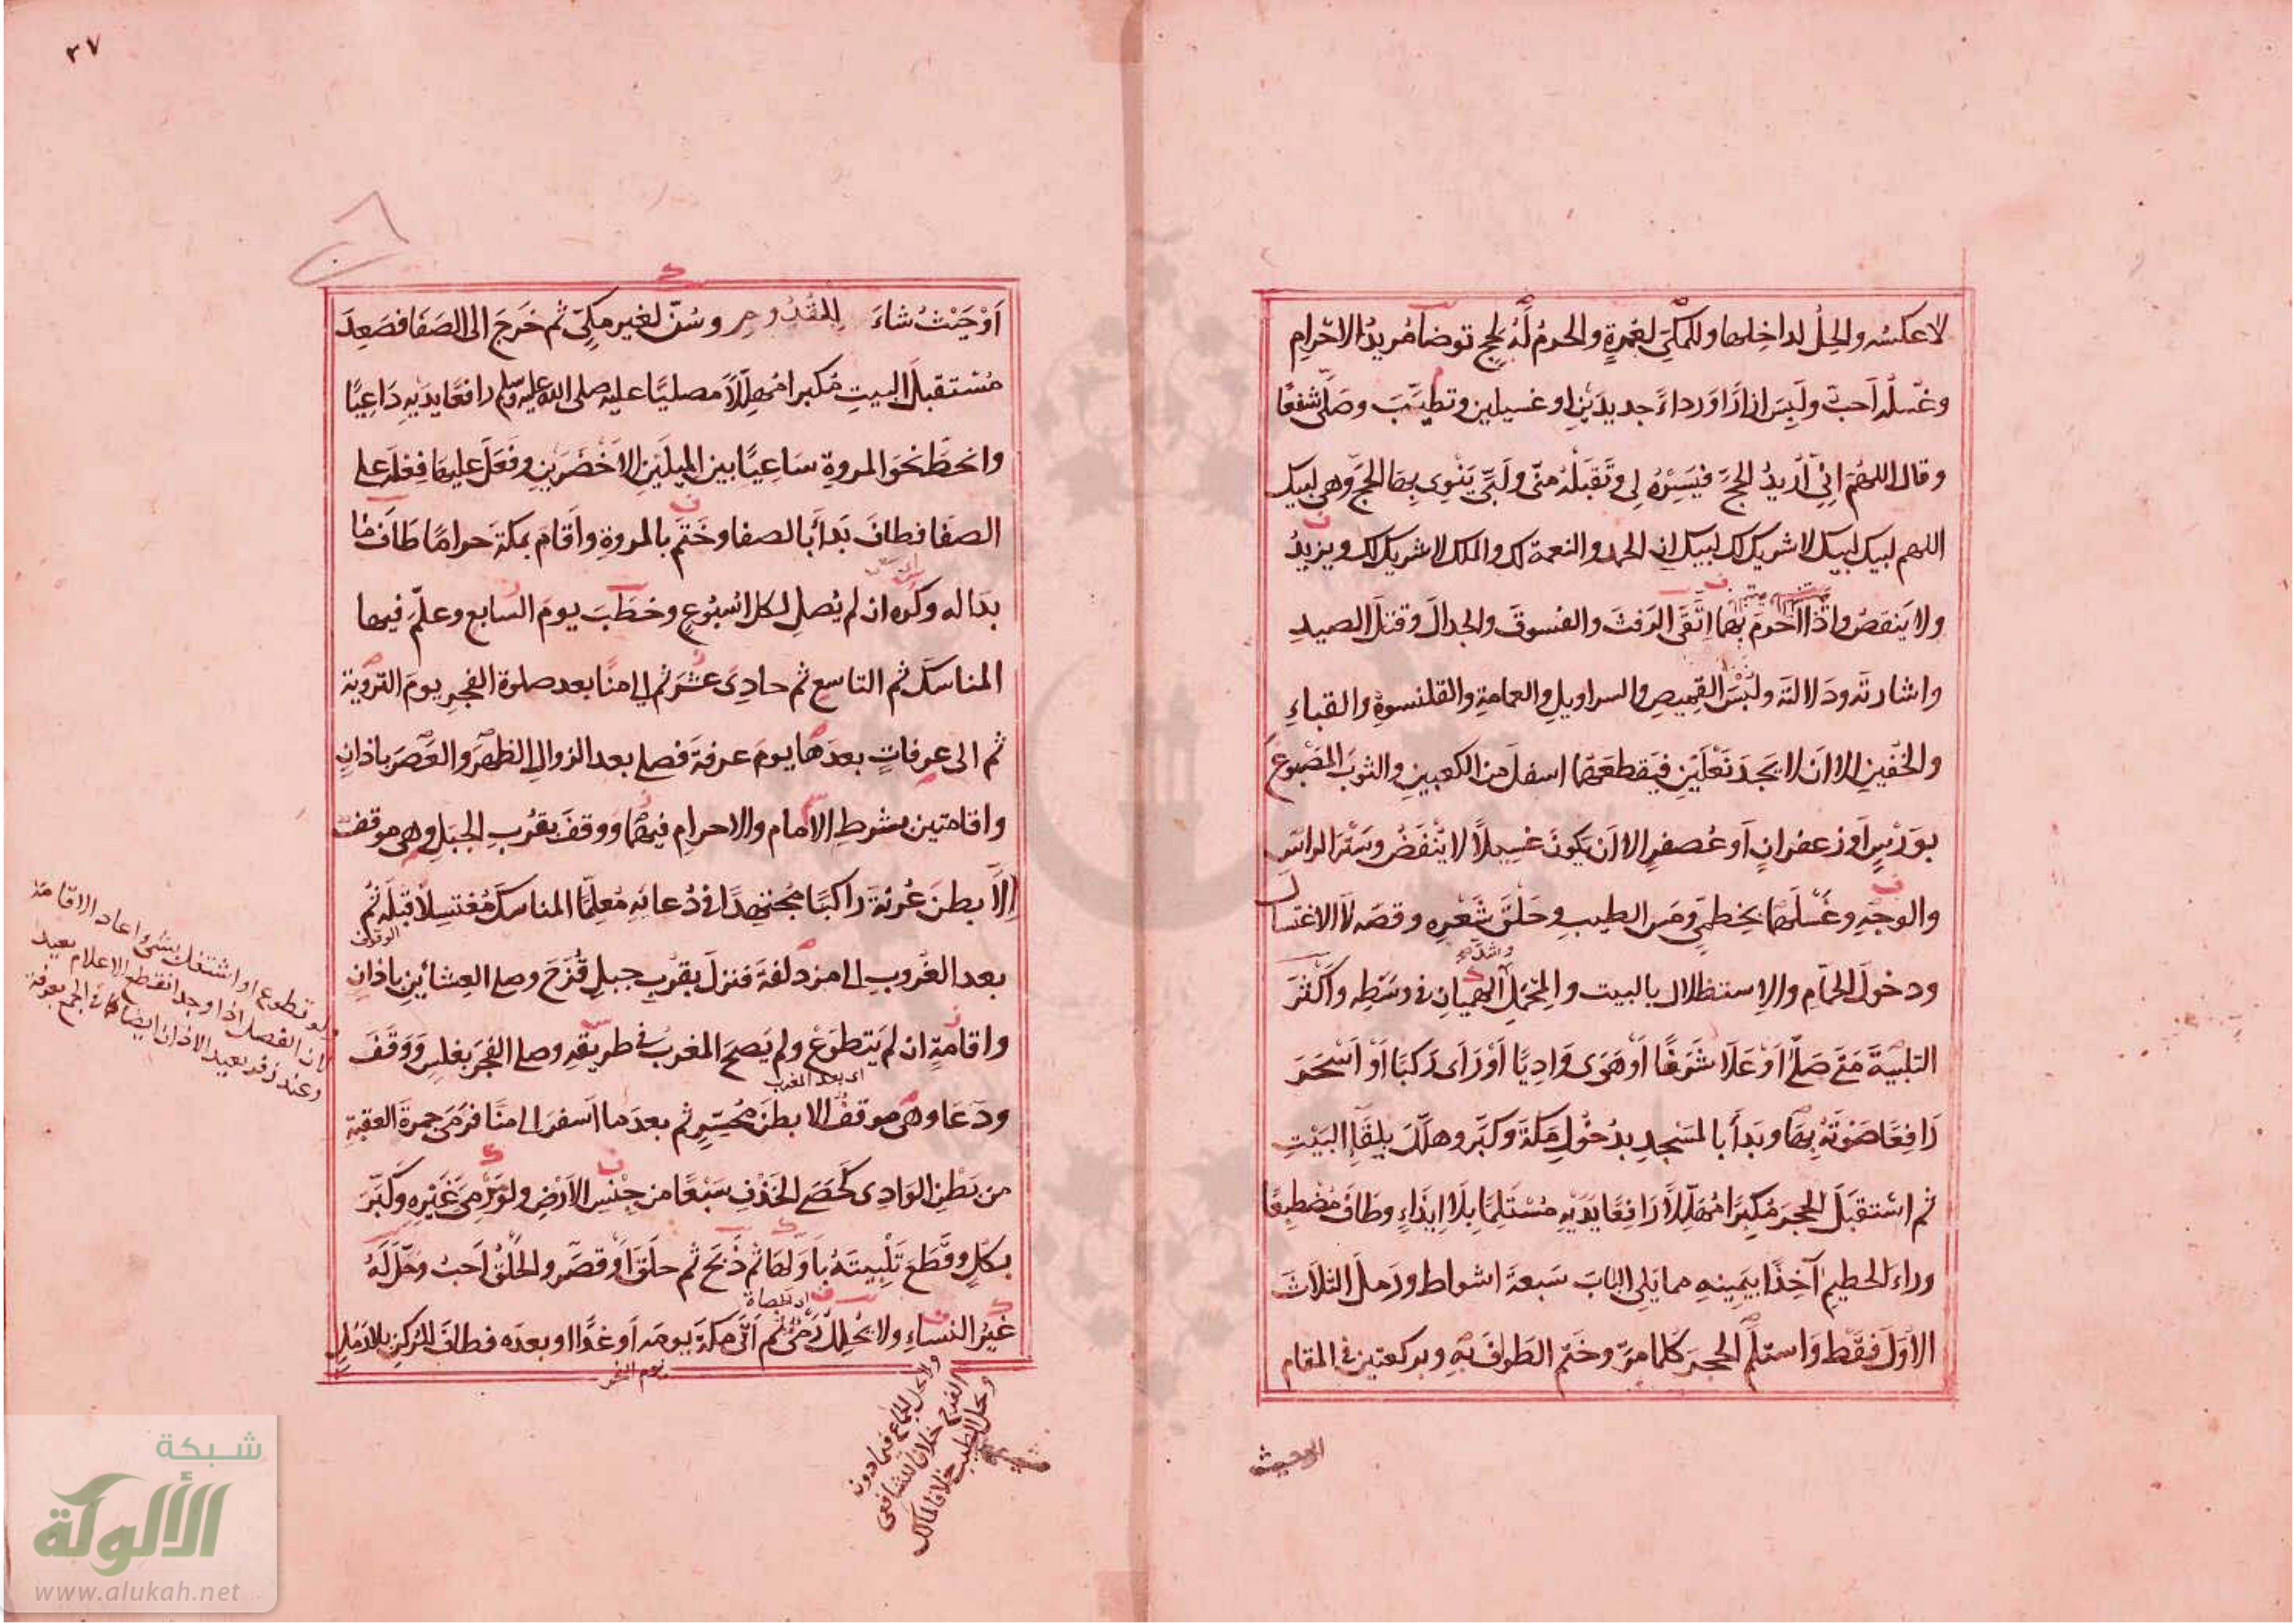 لا عكسه والحل لداخلها وللمكي لعمرة والحرم له لحج توضا مريد الاحرام
وغسله احب ولبس ازارا ورداء جديدين او غسيلين وتطيب وصلى شفعا
وقال اللهم اني اريد الحج فيسره لي وتقبله مني ولبى ينوي بها الحج وهي لبيك
اللهم لبيك لبيك لا شريك لك لبيك ان الحمد والنعمة لك والملك لا شريك لك ويزيد
ولا ينقص واذا احرم بها اتقى الرفث والفسوق والجدال وقتل الصيد
واشارته ودلالته ولبس القميص والسراويل والعمامة والقلنسوة والقباء
والخفين الا ان لا يجد نعلين فيقطعهما اسفل من الكعبين والثوب المصبوغ
بورس او زعفران او عصفر الا ان يكون غسيلا لا ينفض وستر الراس
والوجه وغسلهما بخطمي ومس الطيب وحلق شعره وقصه لا الاغتسال
وشد
ودخول الحمام والاستظلال بالبيت والمحمل الهميان في وسطه واكثر
التلبية متى صلى او علا شرفا او هوى واديا او راى ركبا او اسحر
رافعا صوته بها وبدأ بالمسجد بدخول مكة وكبر وهلل بلقاء البيت
ثم استقبل الحجر مكبرا مهللا رافعا يديه مستلما بلا ايذاء وطاف مضطبعا
وراء الحطيم آخذا بيمينه مما يلي الباب سبعة اشواط ورمل الثلاث
الاول فقط واستلم الحجر كلما مر وختم الطواف به وبركعتين في المقام
او حيث
٣٧
او حيث شاء للقدوم وسن لغير مكي ثم خرج الى الصفا فصعد
مستقبل البيت مكبرا مهللا مصليا عليه صلى الله عليه وسلم رافعا يديه داعيا
وانحط نحو المروة ساعيا بين الميلين الاخضرين وفعل عليها فعله على
الصفا فطاف بدأ بالصفا وختم بالمروة واقام بمكة حراما طاف ما
بدا له وكره ان لم يصل لكل اسبوع وخطب يوم السابع وعلم فيها
المناسك ثم التاسع ثم حادي عشر ثم الى منا بعد صلوة الفجر يوم التروية
ثم الى عرفات بعدها يوم عرفة فصلى بعد الزوال الظهر والعصر باذان
واقامتين بشرط الامام والاحرام فيهما ووقف بقرب الجبل وهي موقف
الا بطن عرنة راكبا مجتهدا في دعائه معلما المناسك مغتسلا قبله ثم
الوقوف
بعد الغروب الى مزدلفة فنزل بقرب جبل قزح وصلى العشائين باذان
واقامة ان لم يتطوع ولم يصح المغرب في طريقه وصلى الفجر بغلس ووقف
اي بعد المغرب
ودعا وهي موقف الا بطن محسر ثم بعد ما اسفر الى منا فرمى جمرة العقبة
من بطن الوادي كحصى الخذف سبعا من جنس الارض ولو رمى غيره وكبر
بكل وقطع تلبيته باولها ثم ذبح ثم حلق او قصر والحلق احب وحل له
غير النساء ولا يحل رمي ثم اتى مكة يومه او غدا او بعده فطاف للركن بلا رمل
يوم النحر
ولو تطوع او اشتغل بشئ اعاد الاقامة
لان الفصل اذا وجد انقطع الاعلام بعيد
وعند زفر يعيد الاذان ايضا كما في الجمع بعرفة
ولا يحل الجماع فيما دون
الفرج خلافا للشافعي
ويحل الطيب خلافا لمالك
شبكة
الألوكة
www.alukah.net